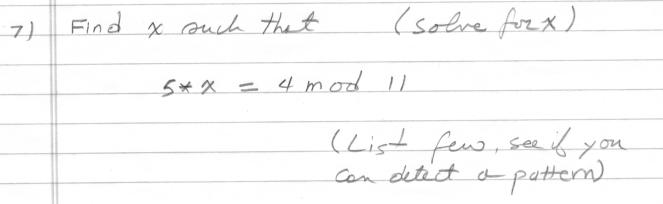 7) Find x such that (solve for x)
5* x = 4 mod 11
(List few, see if you
can detect a pattern)